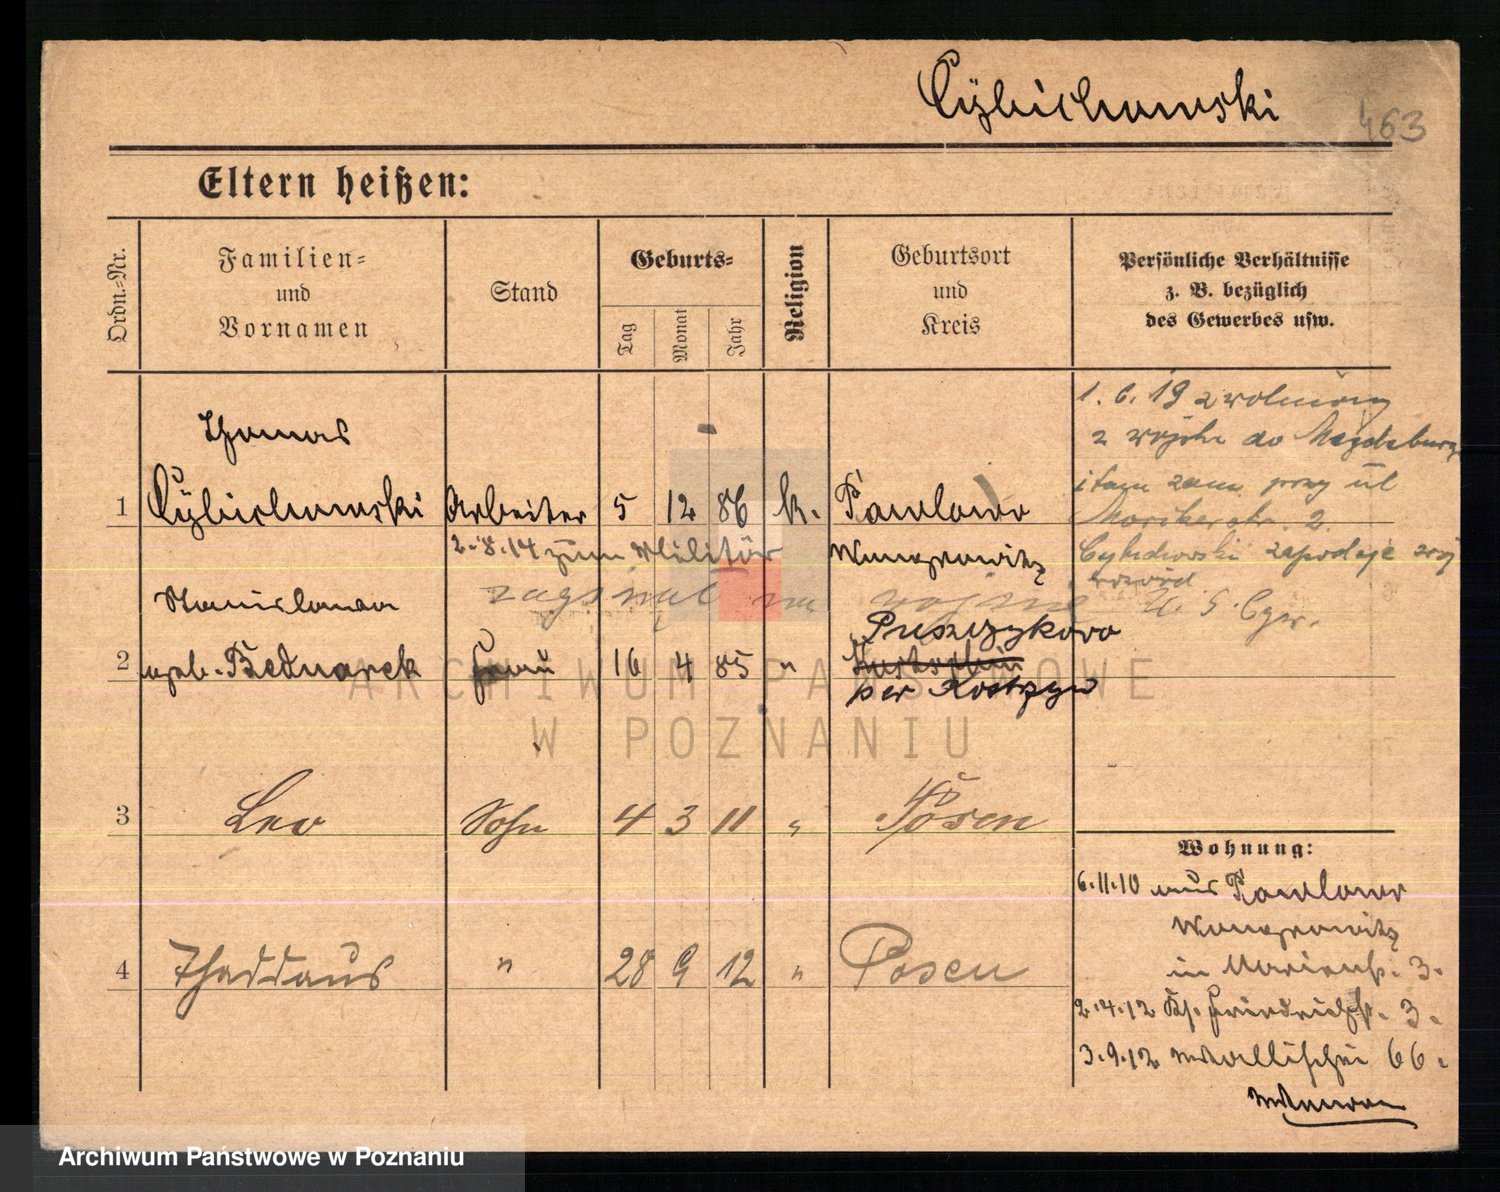 Cybichowski
463
Eltern heißen:
Ordn.-Nr.
Familien-
und
Vornamen
Stand
Geburts-
Tag
Monat
Jahr
Religion
Geburtsort
und
Kreis
Persönliche Verhältnisse
z. B. bezüglich
des Gewerbes usw.
1. 6. 19 zwolniony
z wojska do Magdeburga
i tam zam. przy ul
2.
Thomas
1 Cybichowski Arbeiter 5 12 86 k. Pawlowo
2.8.14 zum Militär
Wongrowitz
Cybichowski zapodaje
zaginął na wojnie
Stanislawa
Puszczykowo
2 geb. Bednarek Frau 16 4 85 "
per Kostrzyn
3 Leo Sohn 4 3 11 " Posen
4 Thaddäus " 28 9 12 " Posen
Wohnung:
6.11.10 aus Pawlowo
Wongrowitz
in Marienst. 3.
2.4.12 Friedrichst. 3.
3.9.12 Wallischei 66.
ARCHIWUM PAŃSTWOWE
W POZNANIU
Archiwum Państwowe w Poznaniu